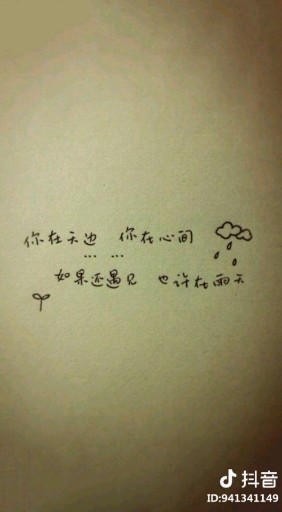 你在天边 你在心间
… …
如果还遇见 也许在雨天
抖音
ID:941341149